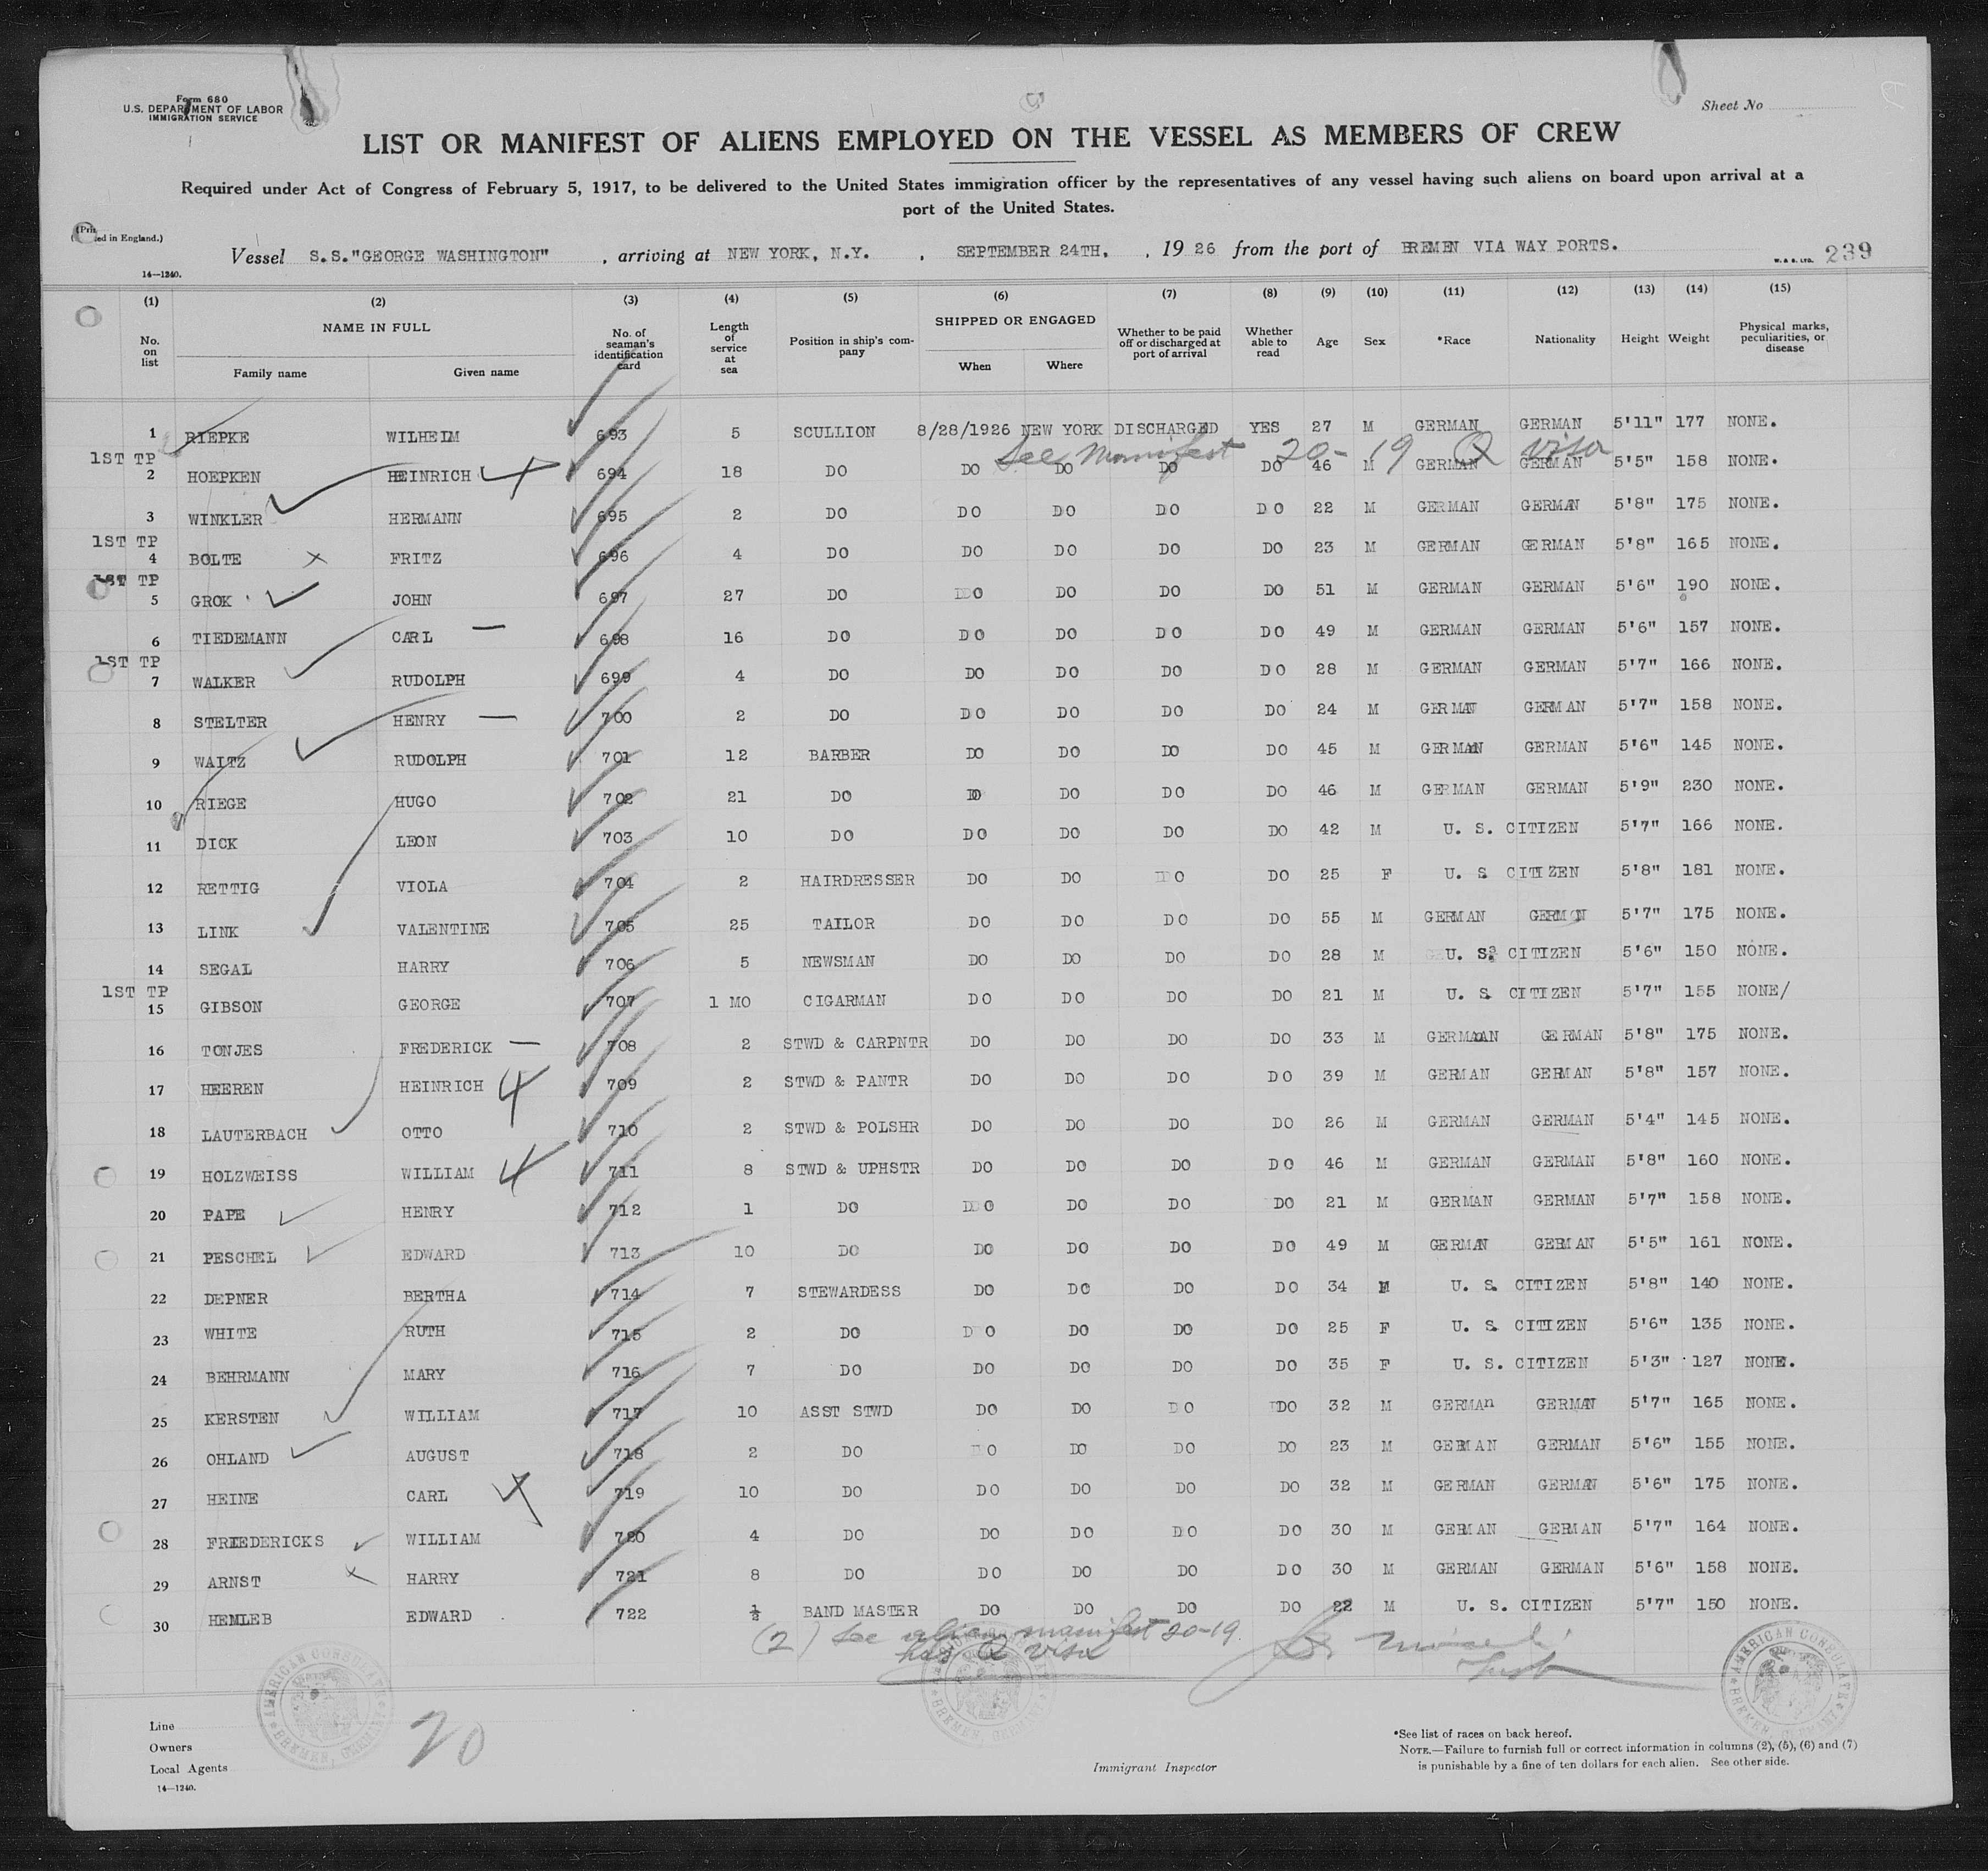 Form 680
U.S. DEPARTMENT OF LABOR
IMMIGRATION SERVICE
Sheet No
LIST OR MANIFEST OF ALIENS EMPLOYED ON THE VESSEL AS MEMBERS OF CREW
Required under Act of Congress of February 5, 1917, to be delivered to the United States immigration officer by the representatives of any vessel having such aliens on board upon arrival at a
port of the United States.
Vessel S.S."GEORGE WASHINGTON" , arriving at NEW YORK, N.Y. , SEPTEMBER 24TH, , 19 26 from the port of BREMEN VIA WAY PORTS.
14—1240.
W. & S. LTD. 239
(1) (2) (3) (4) (5) (6) (7) (8) (9) (10) (11) (12) (13) (14) (15)
No. on list NAME IN FULL Family name Given name No. of seaman's identification card Length of service at sea Position in ship's company SHIPPED OR ENGAGED When Where Whether to be paid off or discharged at port of arrival Whether able to read Age Sex *Race Nationality Height Weight Physical marks, peculiarities, or disease
1 RIEPKE WILHEIM 693 5 SCULLION 8/28/1926 NEW YORK DISCHARGED YES 27 M GERMAN GERMAN 5'11" 177 NONE.
See Manifest 20-19 Q visa
1ST TP
2 HOEPKEN HEINRICH 694 18 DO DO DO DO DO 46 M GERMAN GERMAN 5'5" 158 NONE.
3 WINKLER HERMANN 695 2 DO DO DO DO DO 22 M GERMAN GERMAN 5'8" 175 NONE.
1ST TP
4 BOLTE FRITZ 696 4 DO DO DO DO DO 23 M GERMAN GERMAN 5'8" 165 NONE.
1ST TP
5 GROK JOHN 697 27 DO DO DO DO DO 51 M GERMAN GERMAN 5'6" 190 NONE.
6 TIEDEMANN CARL 698 16 DO DO DO DO DO 49 M GERMAN GERMAN 5'6" 157 NONE.
1ST TP
7 WALKER RUDOLPH 699 4 DO DO DO DO DO 28 M GERMAN GERMAN 5'7" 166 NONE.
8 STELTER HENRY 700 2 DO DO DO DO DO 24 M GERMAN GERMAN 5'7" 158 NONE.
9 WAITZ RUDOLPH 701 12 BARBER DO DO DO DO 45 M GERMAN GERMAN 5'6" 145 NONE.
10 RIEGE HUGO 702 21 DO DO DO DO DO 46 M GERMAN GERMAN 5'9" 230 NONE.
11 DICK LEON 703 10 DO DO DO DO DO 42 M U. S. CITIZEN 5'7" 166 NONE.
12 RETTIG VIOLA 704 2 HAIRDRESSER DO DO DO DO 25 F U. S CITIZEN 5'8" 181 NONE.
13 LINK VALENTINE 705 25 TAILOR DO DO DO DO 55 M GERMAN GERMAN 5'7" 175 NONE.
14 SEGAL HARRY 706 5 NEWSMAN DO DO DO DO 28 M U. S. CITIZEN 5'6" 150 NONE.
1ST TP
15 GIBSON GEORGE 707 1 MO CIGARMAN DO DO DO DO 21 M U. S. CITIZEN 5'7" 155 NONE/
16 TONJES FREDERICK 708 2 STWD & CARPNTR DO DO DO DO 33 M GERMAN GERMAN 5'8" 175 NONE.
17 HEEREN HEINRICH 709 2 STWD & PANTR DO DO DO DO 39 M GERMAN GERMAN 5'8" 157 NONE.
18 LAUTERBACH OTTO 710 2 STWD & POLSHR DO DO DO DO 26 M GERMAN GERMAN 5'4" 145 NONE.
19 HOLZWEISS WILLIAM 711 8 STWD & UPHSTR DO DO DO DO 46 M GERMAN GERMAN 5'8" 160 NONE.
20 PAPE HENRY 712 1 DO DO DO DO DO 21 M GERMAN GERMAN 5'7" 158 NONE.
21 PESCHEL EDWARD 713 10 DO DO DO DO DO 49 M GERMAN GERMAN 5'5" 161 NONE.
22 DEPNER BERTHA 714 7 STEWARDESS DO DO DO DO 34 F U. S. CITIZEN 5'8" 140 NONE.
23 WHITE RUTH 715 2 DO DO DO DO DO 25 F U. S. CITIZEN 5'6" 135 NONE.
24 BEHRMANN MARY 716 7 DO DO DO DO DO 35 F U. S. CITIZEN 5'3" 127 NONE.
25 KERSTEN WILLIAM 717 10 ASST STWD DO DO DO DO 32 M GERMAn GERMAN 5'7" 165 NONE.
26 OHLAND AUGUST 718 2 DO DO DO DO DO 23 M GERMAN GERMAN 5'6" 155 NONE.
27 HEINE CARL 719 10 DO DO DO DO DO 32 M GERMAN GERMAN 5'6" 175 NONE.
28 FRIEDERICKS WILLIAM 720 4 DO DO DO DO DO 30 M GERMAN GERMAN 5'7" 164 NONE.
29 ARNST HARRY 721 8 DO DO DO DO DO 30 M GERMAN GERMAN 5'6" 158 NONE.
30 HEMLEB EDWARD 722 ½ BAND MASTER DO DO DO DO 22 M U. S. CITIZEN 5'7" 150 NONE.
(2) See alien manifest 20-19
has Q visa
AMERICAN CONSULATE BREMEN, GERMANY
AMERICAN CONSULATE BREMEN, GERMANY
Line
Owners
Local Agents
14—1240.
20
Immigrant Inspector
*See list of races on back hereof.
NOTE.—Failure to furnish full or correct information in columns (2), (5), (6) and (7)
is punishable by a fine of ten dollars for each alien. See other side.